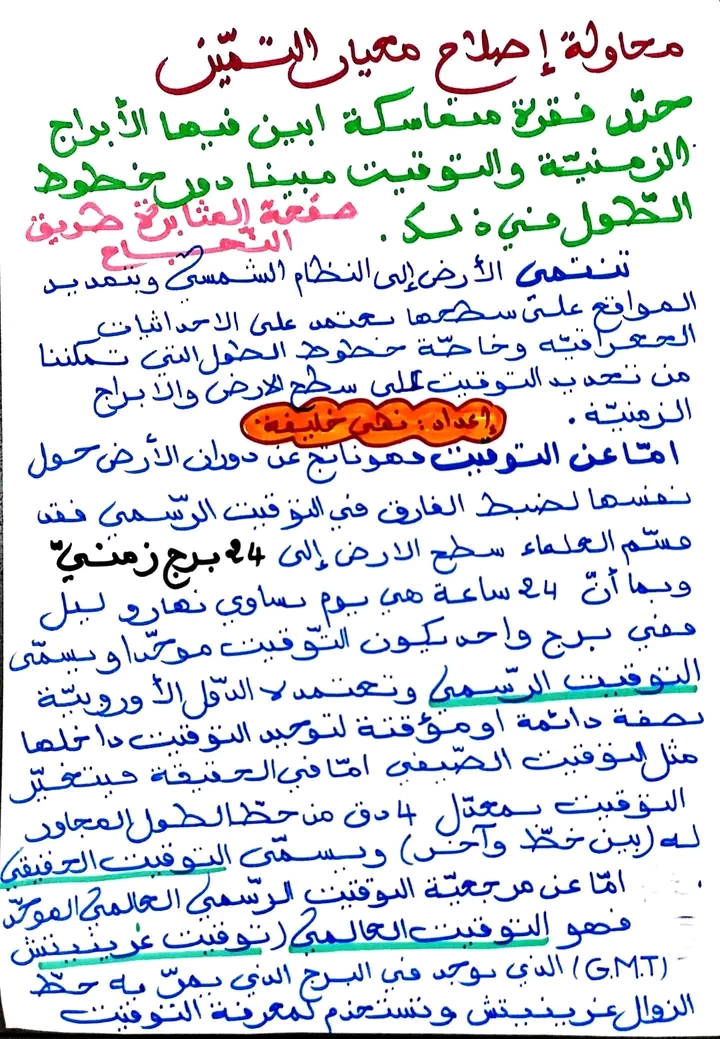 محاولة إصلاح معيار التميّز
حرّر فقرة متماسكة ابين فيها الأبراج
الزمنيّة والتوقيت مبينا دور خطوط
الطّول في ذلك.
صفحة المثابرة طريق
النّجاح
تنتمي الأرض إلى النظام الشمسي وتحديد
المواقع على سطحها يعتمد على الاحداثيات
الجغرافيّة وخاصّة خطوط الطول التي تمكننا
من تحديد التوقيت على سطح الارض والابراج
الزمنيّة.
إعداد: نهى خليفة
امّا عن التوقيت فهو ناتج عن دوران الأرض حول
نفسها لضبط الفارق في التوقيت الرّسمي فقد
قسّم العلماء سطح الارض إلى 24 برج زمنيّ
وبما أنّ 24 ساعة هي يوم يساوي نهار و ليل
ففي برج واحد يكون التّوقيت موحّدا ويسمّى
التوقيت الرّسمي وتعتمد لا الدّول الأوروبيّة
بصفة دائمة او مؤقتة لتوحيد التوقيت داخلها
مثل التوقيت الصّيفي امّا في الحقيقة فيتغيّر
التوقيت بمعدّل 4 دق من خطّ الطول المجاور
له (بين خطّ وآخر) ويسمّى التوقيت الحقيقي
امّا عن مرجعيّة التوقيت الرّسمي العالمي الموحّد
فهو التوقيت العالمي (توقيت غرينيتش
(G.M.T) الذي يوجد في البرج الذي يمرّ به خطّ
الزوال غرينيتش وتستخدم لمعرفة التوقيت